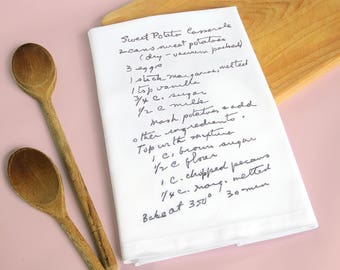 Sweet Potato Casserole
2 cans sweet potatoes
(dry-vacuum packed)
3 eggs
1 stick margarine, melted
1 tsp vanilla
3/4 c. sugar
1/2 c milk
Mash potatoes & add
other ingredients.
Top with mixture
1 C. brown sugar
1/2 c flour
1 c. chopped pecans
1/4 c. marg. melted
Bake at 350° 30 min